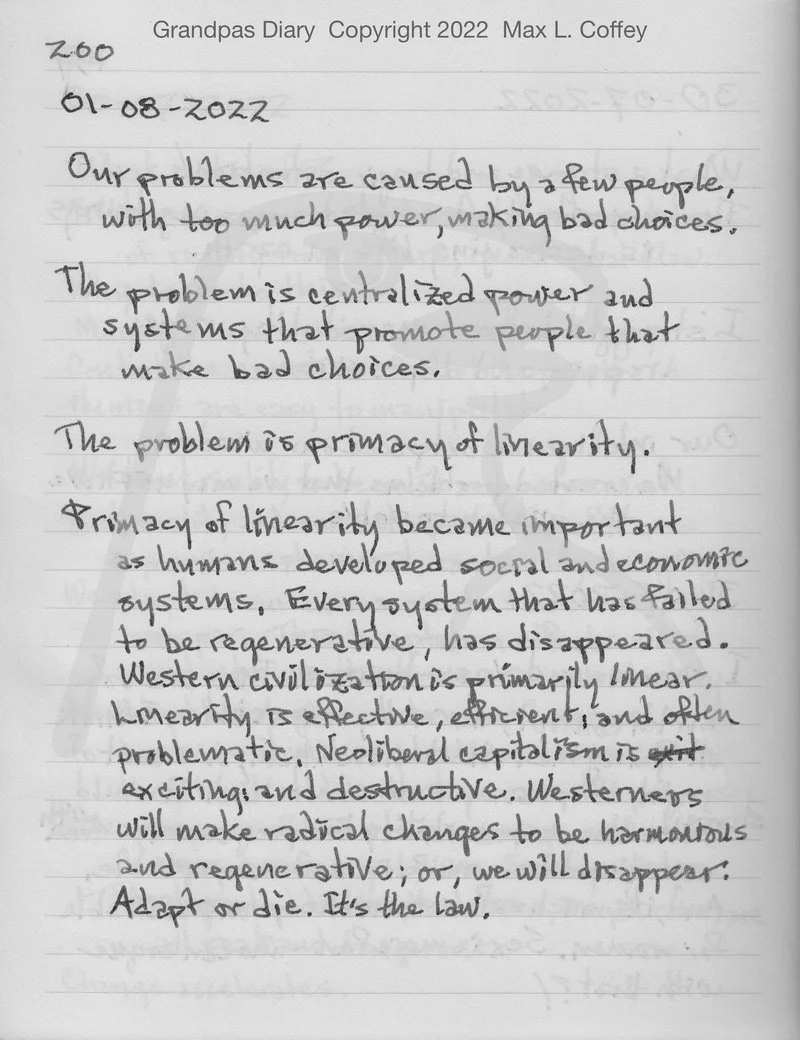 Grandpas Diary Copyright 2022 Max L. Coffey
200
01-08-2022
Our problems are caused by a few people,
with too much power, making bad choices.
The problem is centralized power and
systems that promote people that
make bad choices.
The problem is primacy of linearity.
Primacy of linearity became important
as humans developed social and economic
systems. Every system that has failed
to be regenerative, has disappeared.
Western civilization is primarily linear.
Linearity is effective, efficient; and often
problematic. Neoliberal capitalism is exit
exciting; and destructive. Westerners
will make radical changes to be harmonious
and regenerative; or, we will disappear:
Adapt or die. It's the law.